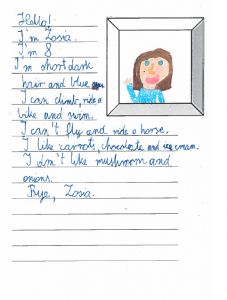 Hello!
I'm Zosia.
I'm 8
I'm short dark
hair and blue eyes
I can climb, ride a
bike and swim.
I can't fly and ride a horse.
I like carrots, chocolate and ice cream.
I don't like mushroom and
onions.
Bye, Zosia.